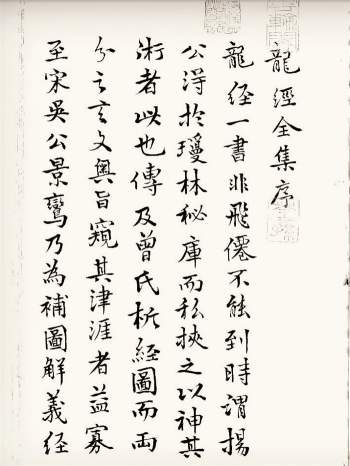 龍經全集序
龍經一書非飛僊不能到時謂楊
公淂於瓊林秘庫而私挾之以神其
術者此也傳及曾氏析經圖而両
分之玄文奧旨窺其津涯者益寡
至宋吳公景鸞乃為補圖解義経